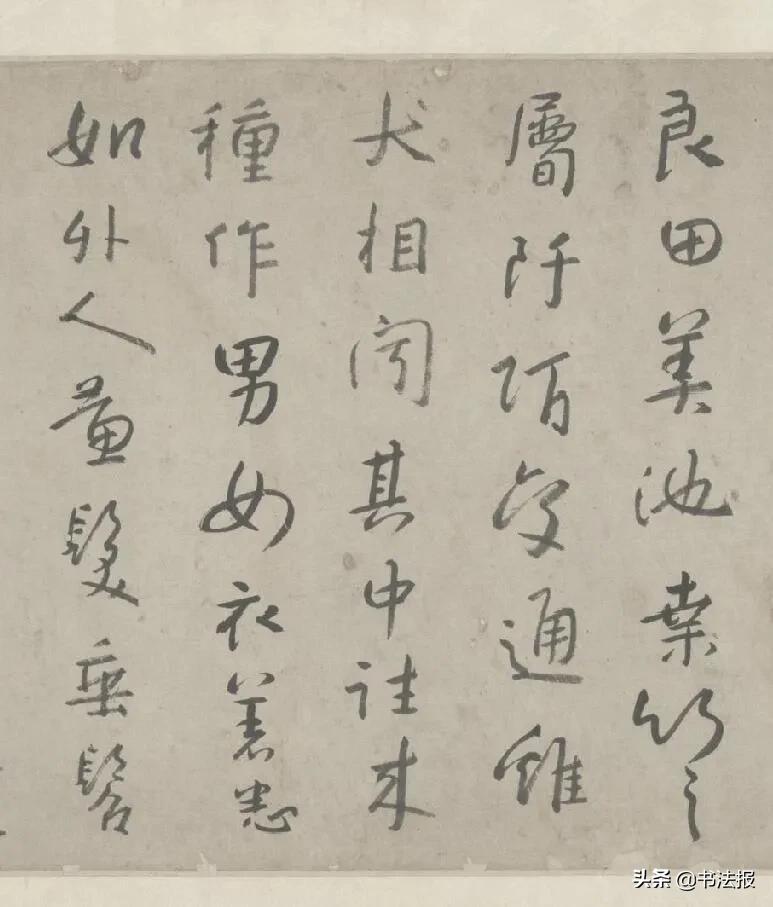 良田美池桑竹之
層阡陌交通雞
犬相聞其中往来
種作男女衣著悉
如外人黄髮垂髫
头条 @书法报